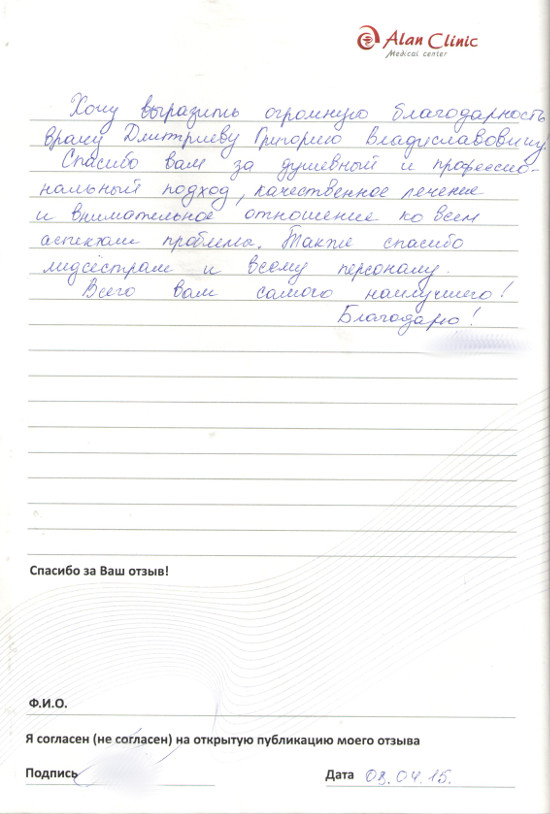 Alan Clinic
Medical center
Хочу выразить огромную благодарность
врачу Дмитриеву Григорию Владиславовичу.
Спасибо вам за душевный и профессио-
нальный подход, качественное лечение
и внимательное отношение ко всем
аспектам проблемы. Также спасибо
медсёстрам и всему персоналу.
Всего вам самого наилучшего!
Благодарю!
Спасибо за Ваш отзыв!
Ф.И.О.
Я согласен (не согласен) на открытую публикацию моего отзыва
Подпись
Дата 03.04.15.